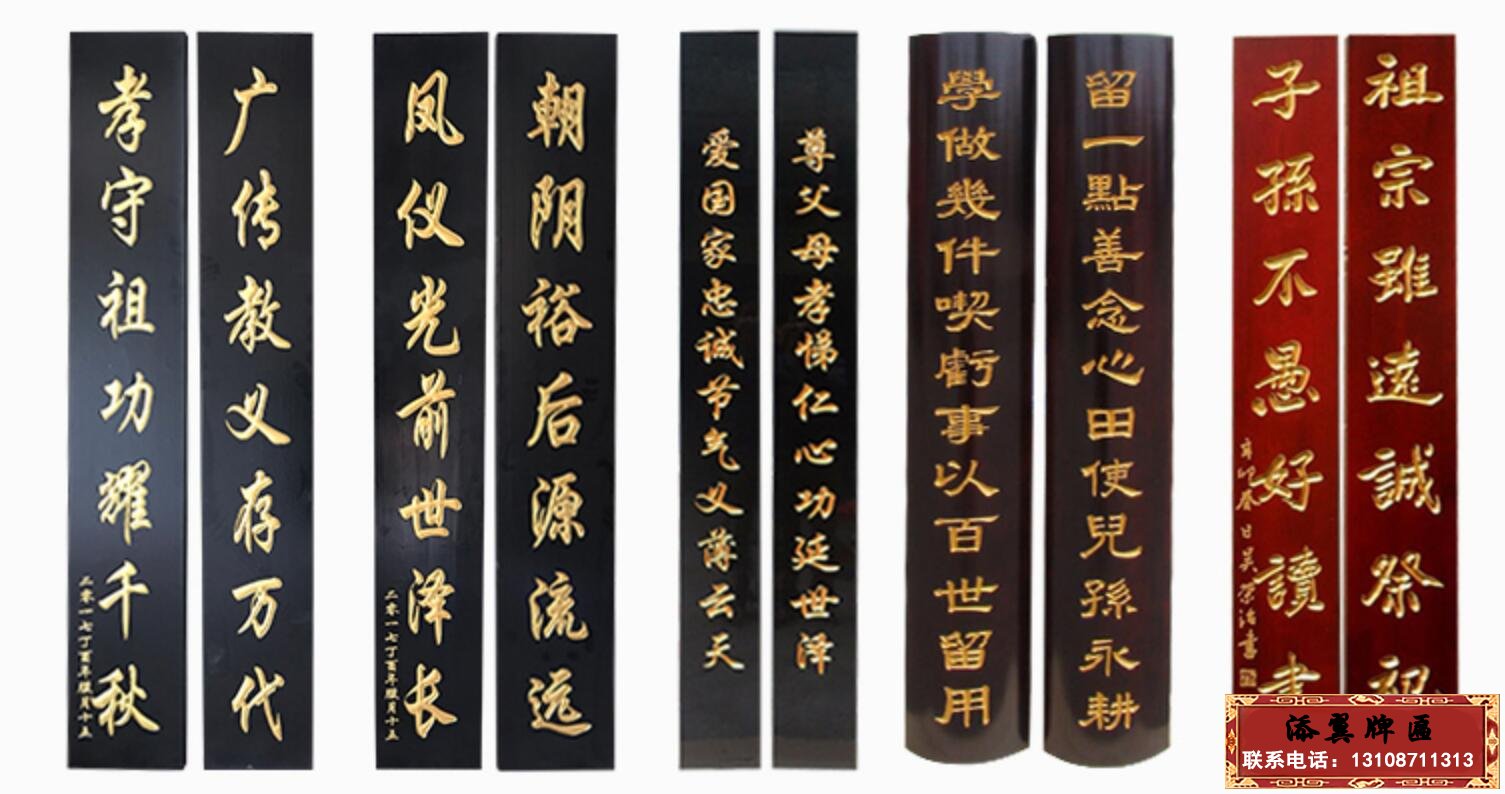 祖宗雖遠誠祭祀
子孫不愚好讀書
辛卯春日吴
留一點善念心田使兒孫永耕
學做幾件喫虧事以百世留用
尊父母孝悌仁心功延世泽
爱国家忠诚节气义薄云天
朝阴裕后源流远
凤仪光前世泽长
二零一七丁酉年腊月十五
广传教义存万代
孝守祖功耀千秋
二零一七丁酉年腊月十五
添翼牌匾
联系电话：13108711313